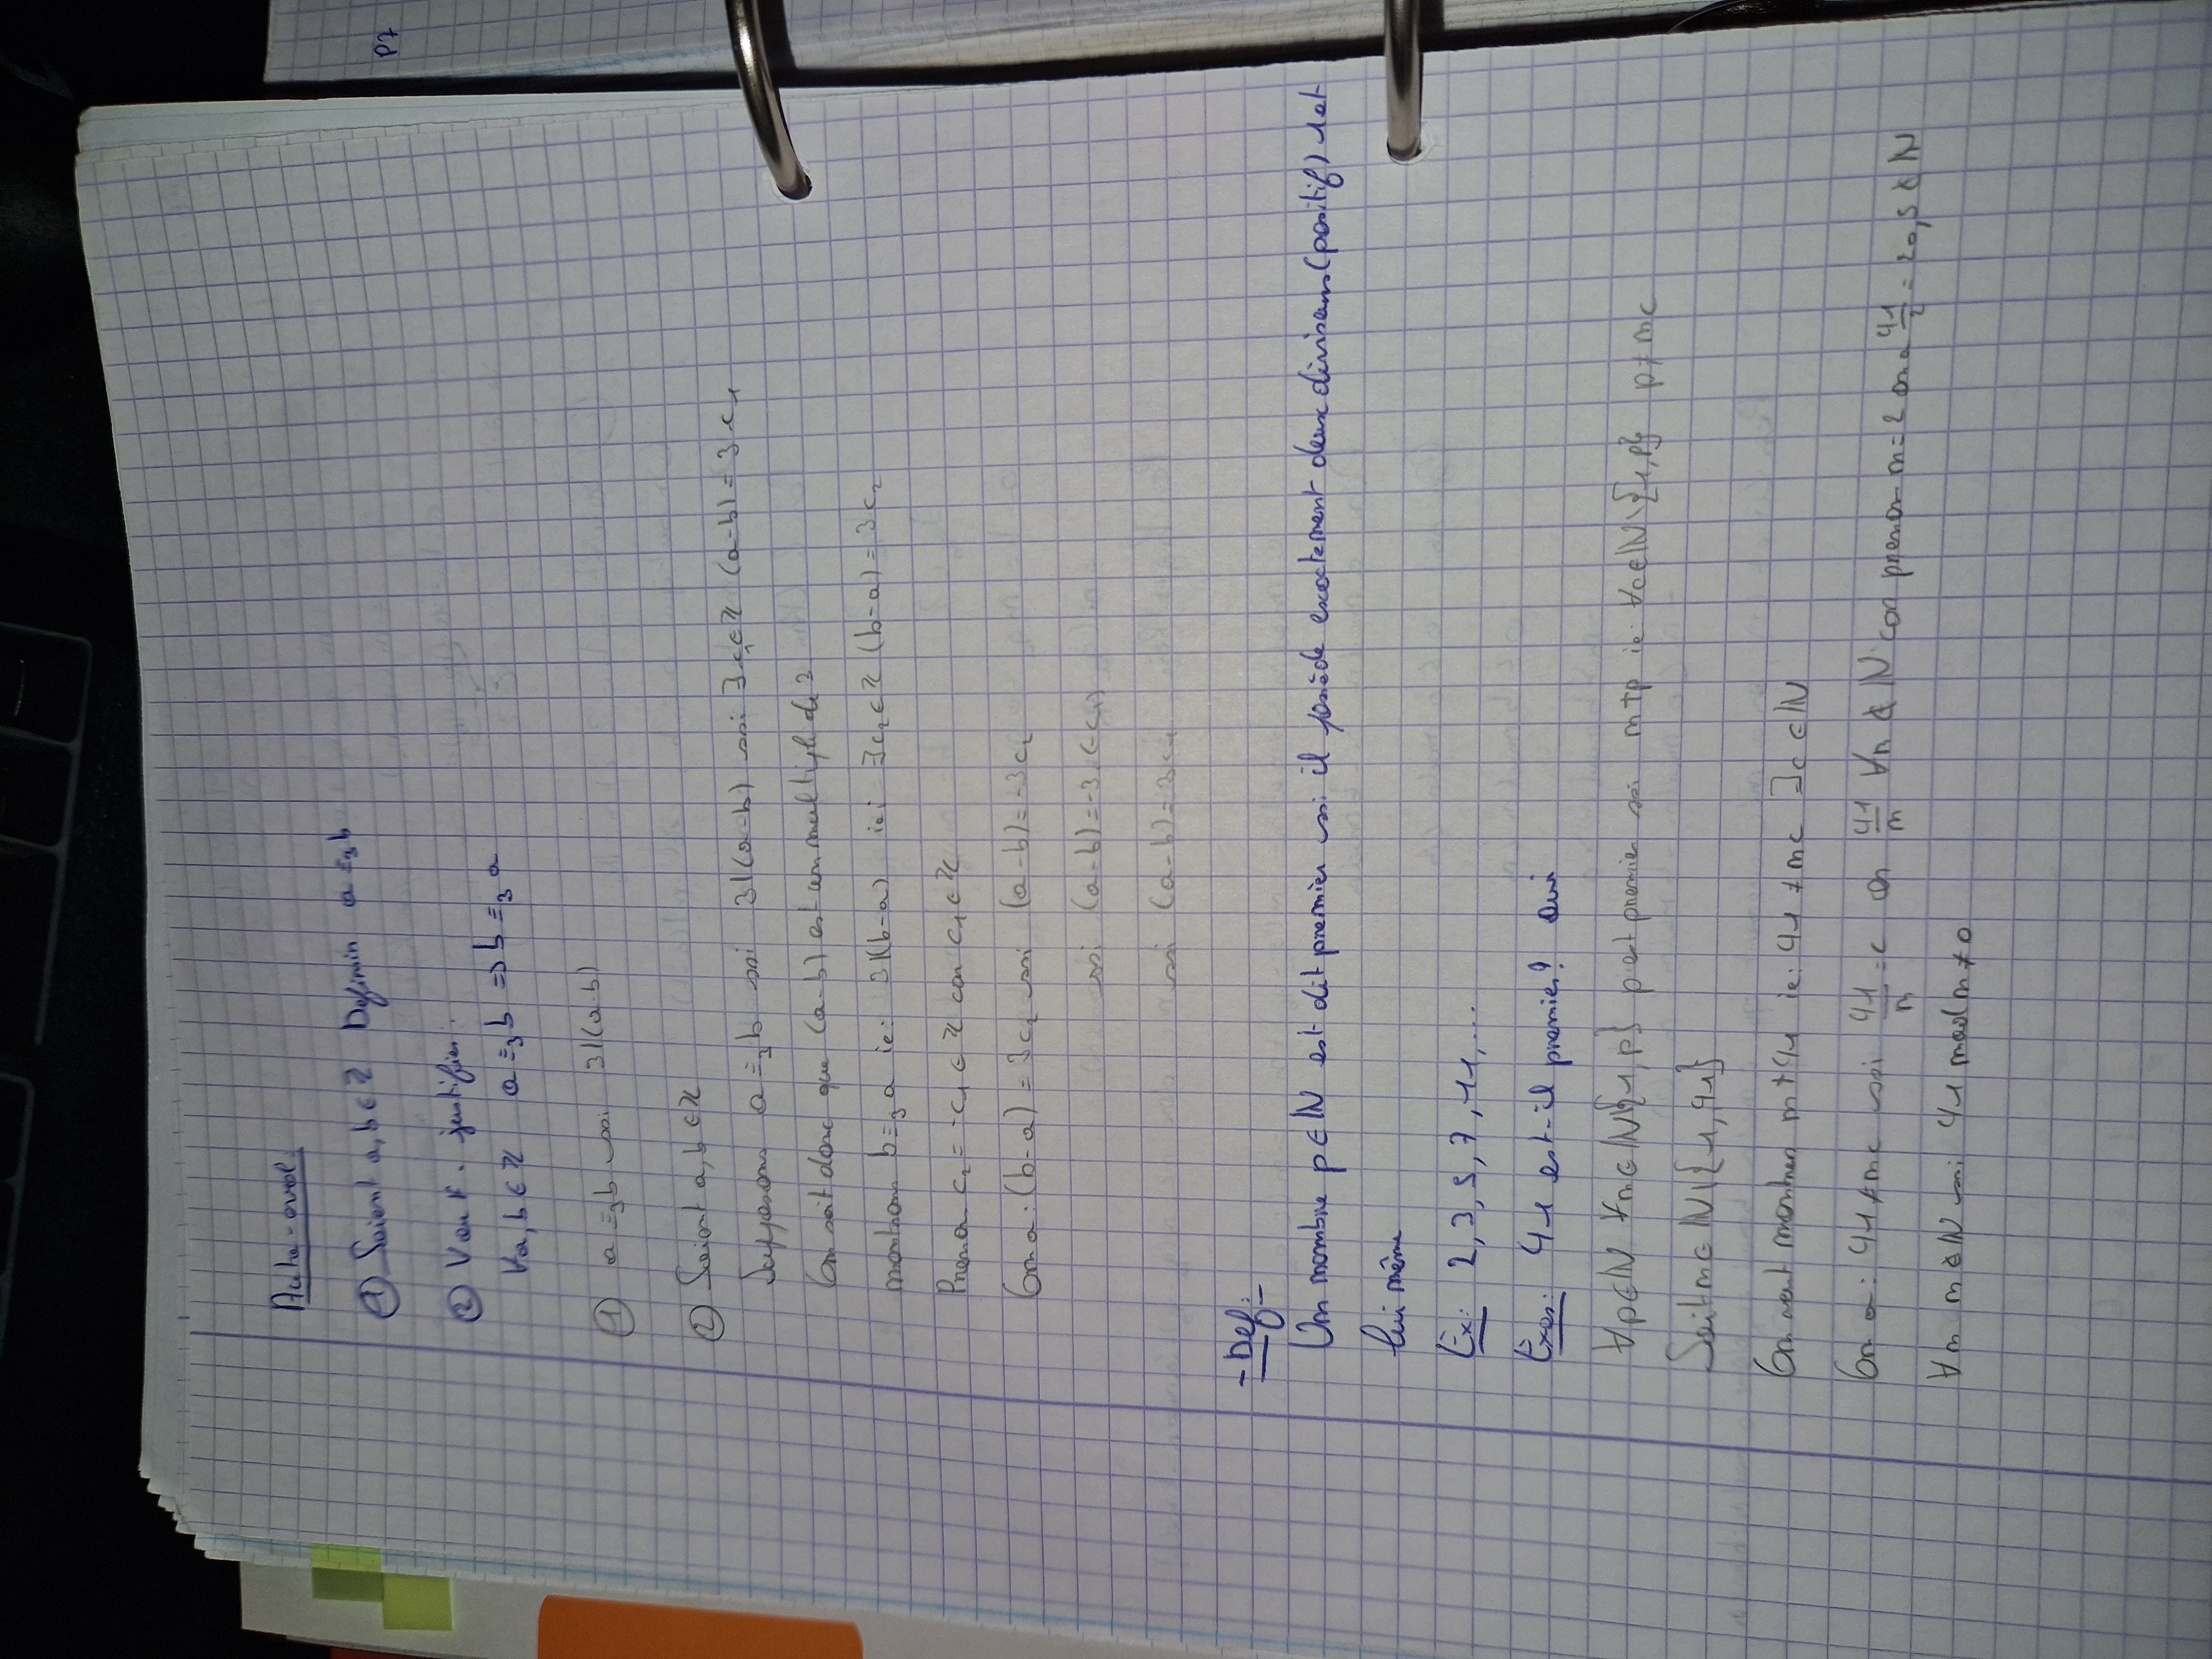 Auto-eval:
① Soient a, b ∈ ℤ Definir a ≡₃ b
② V ou F. justifier:
∀a, b ∈ ℤ a ≡₃ b => b ≡₃ a
① a ≡₃ b ssi 3|(a-b)
② Soient a, b ∈ ℤ
Supposons a ≡₃ b ssi 3|(a-b) ssi ∃c₁∈ℤ (a-b) = 3 c₁
On sait donc que (a-b) est un multiple de 3
montrons b ≡₃ a ie: 3|(b-a) ie: ∃c₂ ∈ ℤ (b-a) = 3c₂
Prenon c₂ = -c₁ ∈ ℤ car c₁ ∈ ℤ
On a: (b-a) = 3c₂ ssi (a-b) = -3c₂
ssi (a-b) = -3.(-c₁)
ssi (a-b) = 3c₁
- Def:
Un nombre p ∈ ℕ est dit premier ssi il possède exactement deux diviseurs (positif) 1 et
lui même
Ex: 2, 3, 5, 7, 11, ...
Exos: 41 est-il premier? oui
∀p∈ℕ ∀n∈ℕ\{1, p} p est premier ssi n∤p ie: ∀c∈ℕ\{1, p} p ≠ nc
Soit n ∈ ℕ\{1, 41}
On veut montrer n∤41 ie: 41 ≠ nc ∃c ∈ ℕ
On a: 41 ≠ nc ssi 41/n = c or 41/n ∀n ∉ ℕ car prenon n=2 on a 41/2 = 20,5 ∉ ℕ
∀n n ∉ ℕ ssi 41 mod n ≠ 0
P7